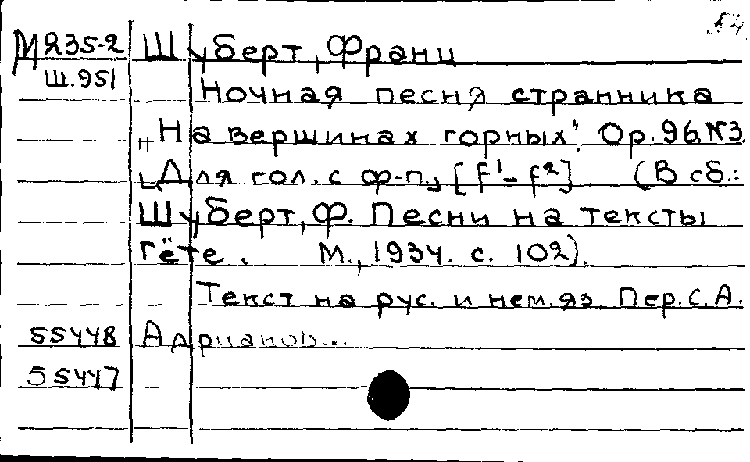 54
М235-2 Шуберт, Франц
Ш.951 Ночная песня странника
„На вершинах горных". Op.96,№3
[Для гол. с ф-п., [f¹-f²] (В сб.:
Шуберт, Ф. Песни на тексты
Гёте. М., 1934. с. 102).
Текст на рус. и нем. яз Пер. С. А.
55448 Адрианов...
55447